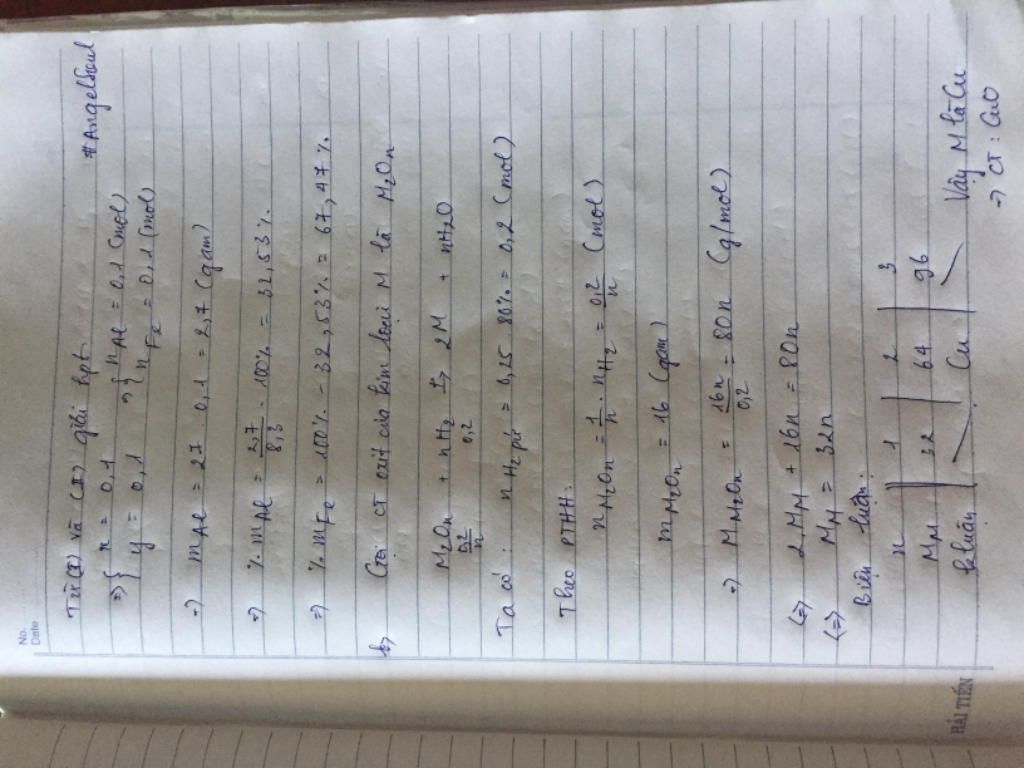 No.
Date
#Angelsoul
Từ (I) và (II) giải hpt
=> { x = 0,1 => { nAl = 0,1 (mol)
y = 0,1 nFe = 0,1 (mol)
=> mAl = 27 . 0,1 = 2,7 (gam)
=> % mAl = 2,7/8,3 . 100% = 32,53%
=> % mFe = 100% - 32,53% = 67,47%
b, Gọi CT oxit của kim loại M là M2On
M2On + nH2 t°→ 2M + nH2O
0,2/n 0,2
Ta có: nH2 pứ = 0,25 . 80% = 0,2 (mol)
Theo PTHH:
nM2On = 1/n . nH2 = 0,2/n (mol)
mM2On = 16 (gam)
=> MM2On = 16n/0,2 = 80n (g/mol)
(=) 2.MM + 16n = 80n
(=) MM = 32n
Biện luận:
n 1 2 3
MM 32 64 96
k.luận \ Cu \ Vậy M là Cu
=> CT: CuO
HẢI TIẾN